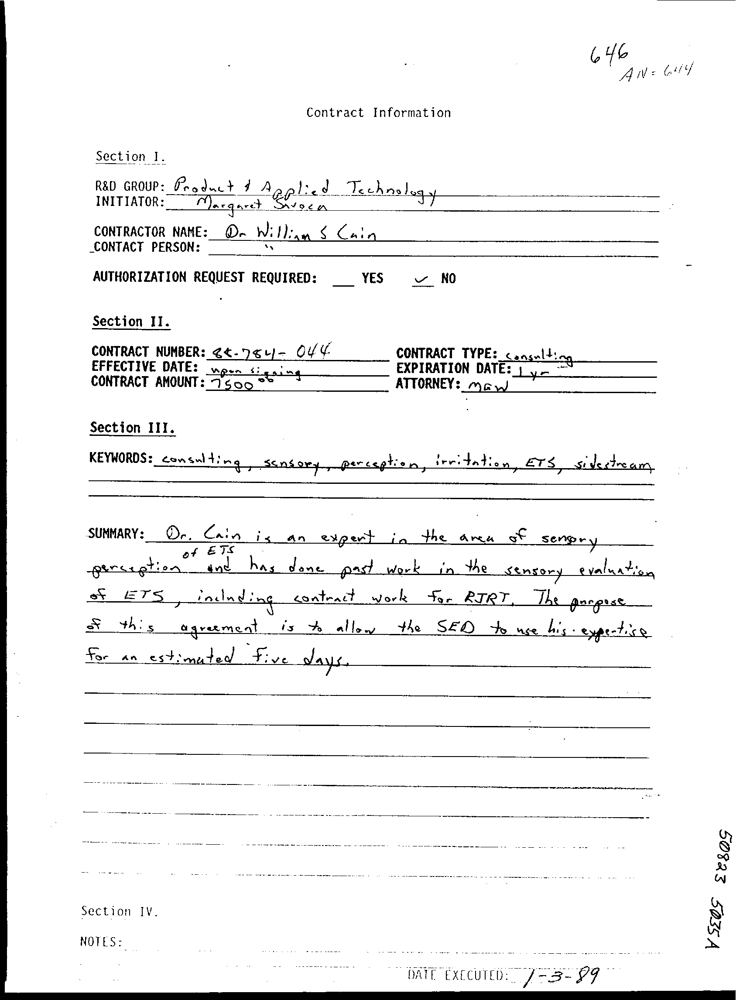 646
AN = 644
Contract Information
Section I.
R&D GROUP: Product & Applied Technology
INITIATOR: Margaret Savoca
CONTRACTOR NAME: Dr William S Cain
CONTACT PERSON: "
AUTHORIZATION REQUEST REQUIRED: ___ YES ✓ NO
Section II.
CONTRACT NUMBER: 88-784-044 CONTRACT TYPE: consulting
EFFECTIVE DATE: upon signing EXPIRATION DATE: 1 yr
CONTRACT AMOUNT: 7500 00 ATTORNEY: MGW
Section III.
KEYWORDS: consulting, sensory, perception, irritation, ETS, sidestream
SUMMARY: Dr. Cain is an expert in the area of sensory
of ETS
perception and has done past work in the sensory evaluation
of ETS, including contract work for RJRT. The purpose
of this agreement is to allow the SED to use his expertise
for an estimated five days.
Section IV.
NOTES:
DATE EXECUTED: 1-3-89
50823 5035A